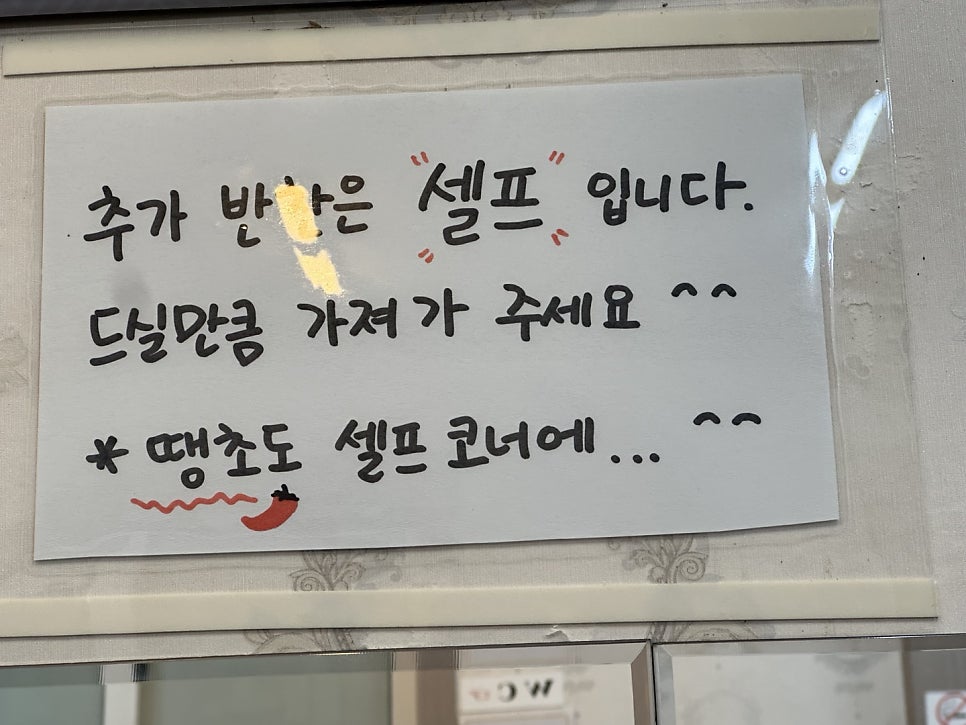 추가 반찬은 "셀프" 입니다.
드실만큼 가져가 주세요 ^^
* 땡초도 셀프 코너에... ^^
W.C